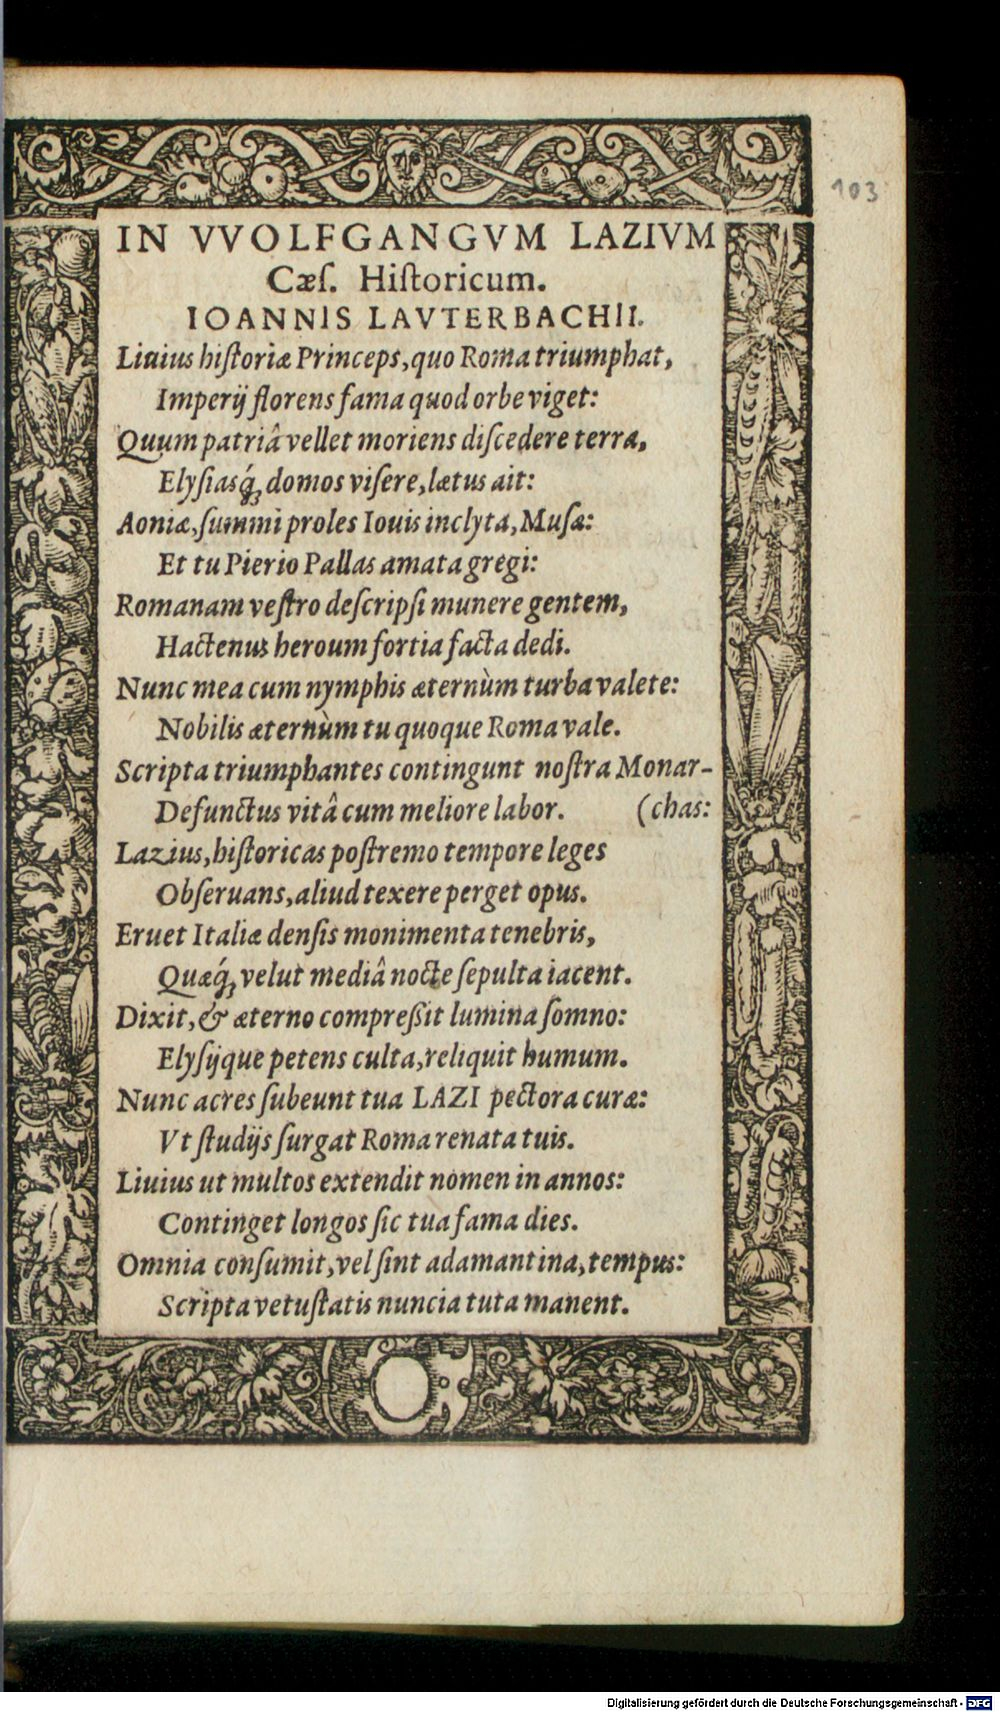 103
IN VVOLFGANGVM LAZIVM
Cæſ. Hiſtoricum.
IOANNIS LAVTERBACHII.
Liuius hiſtoriæ Princeps, quo Roma triumphat,
Imperij florens fama quod orbe viget:
Quum patriâ vellet moriens diſcedere terra,
Elyſiasq́ꝫ domos viſere, lætus ait:
Aoniæ, ſummi proles Iouis inclyta, Muſæ:
Et tu Pierio Pallas amata gregi:
Romanam veſtro deſcripſi munere gentem,
Hactenus heroum fortia facta dedi.
Nunc mea cum nymphis æternùm turba valete:
Nobilis æternùm tu quoque Roma vale.
Scripta triumphantes contingunt noſtra Monar-
Defunctus vitâ cum meliore labor. (chas:
Lazius, hiſtoricas poſtremo tempore leges
Obſeruans, aliud texere perget opus.
Eruet Italiæ denſis monimenta tenebris,
Quæq́ꝫ velut mediâ nocte ſepulta iacent.
Dixit, & æterno compreßit lumina ſomno:
Elyſijque petens culta, reliquit humum.
Nunc acres ſubeunt tua LAZI pectora curæ:
Vt ſtudijs ſurgat Roma renata tuis.
Liuius ut multos extendit nomen in annos:
Continget longos ſic tua fama dies.
Omnia conſumit, vel ſint adamantina, tempus:
Scripta vetuſtatis nuncia tuta manent.
Digitalisierung gefördert durch die Deutsche Forschungsgemeinschaft - DFG